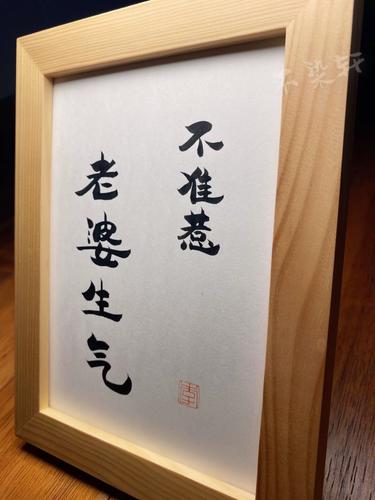 不准惹
老婆生气
李